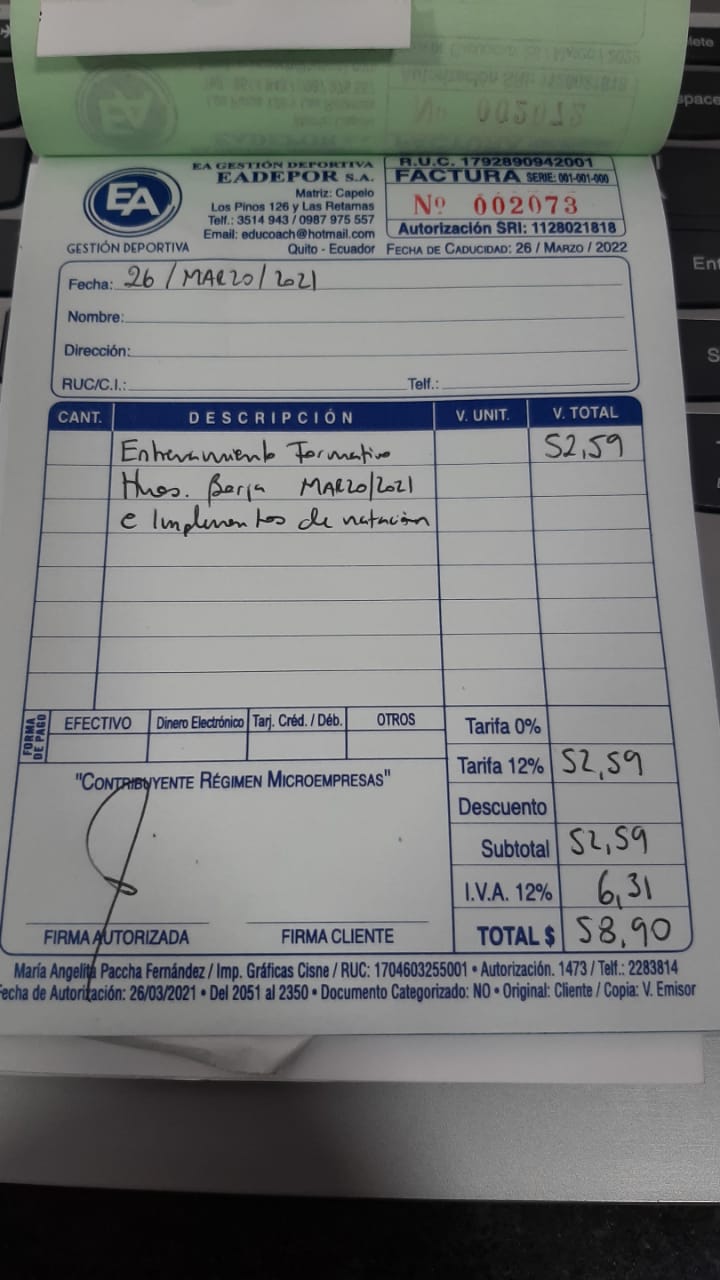 Nº 002072
EA
GESTIÓN DEPORTIVA
EA GESTIÓN DEPORTIVA
EADEPOR S.A.
Matriz: Capelo
Los Pinos 126 y Las Retamas
Telf.: 3514 943 / 0987 975 557
Email: educoach@hotmail.com
Quito - Ecuador
R.U.C. 1792890942001
FACTURA SERIE: 001-001-000
Nº 002073
Autorización SRI: 1128021818
FECHA DE CADUCIDAD: 26 / MARZO / 2022
Fecha: 26 / MARZO / 2021
Nombre:
Dirección:
RUC/C.I.: Telf.:
CANT. DESCRIPCIÓN V. UNIT. V. TOTAL
Entrenamiento Formativo 52,59
Hnos. Borja MARZO/2021
e Implementos de natación
FORMA DE PAGO
EFECTIVO Dinero Electrónico Tarj. Créd. / Déb. OTROS
Tarifa 0%
Tarifa 12% 52,59
"CONTRIBUYENTE RÉGIMEN MICROEMPRESAS"
Descuento
Subtotal 52,59
I.V.A. 12% 6,31
TOTAL $ 58,90
FIRMA AUTORIZADA FIRMA CLIENTE
María Angelita Paccha Fernández / Imp. Gráficas Cisne / RUC: 1704603255001 • Autorización. 1473 / Telf.: 2283814
Fecha de Autorización: 26/03/2021 • Del 2051 al 2350 • Documento Categorizado: NO • Original: Cliente / Copia: V. Emisor